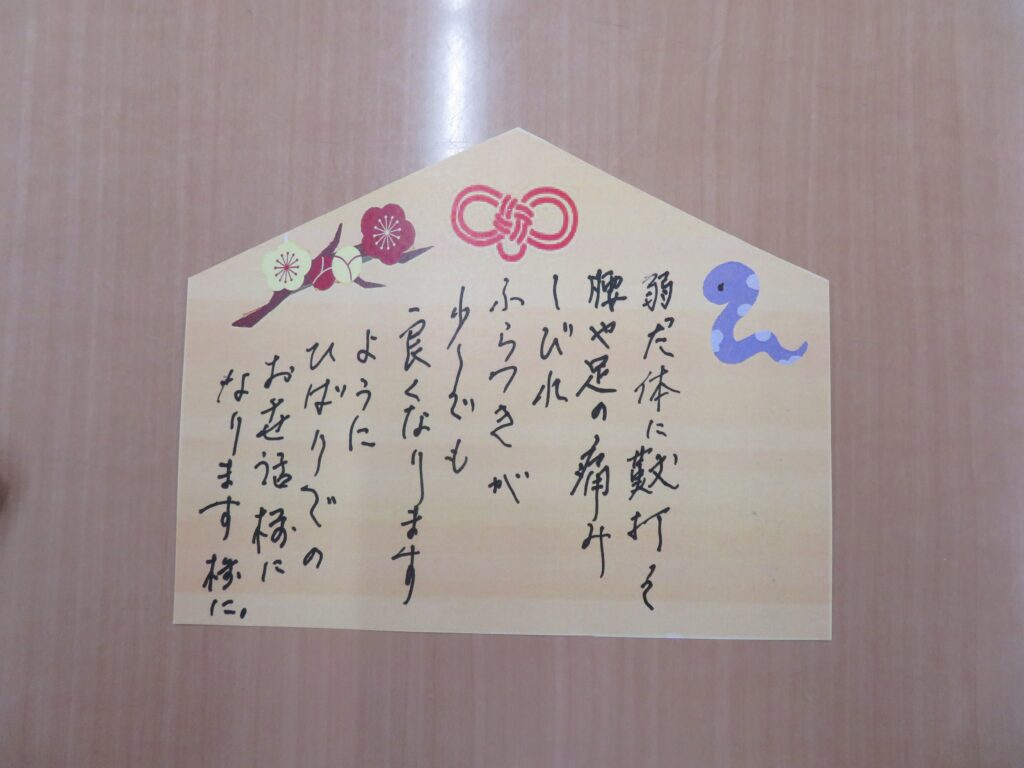 弱だ体に鞭打そ
腰や足の痛み
しびれ
ふらつきが
少しでも
良くなります
ように
ひばりでの
おせ話様に
なります様に。